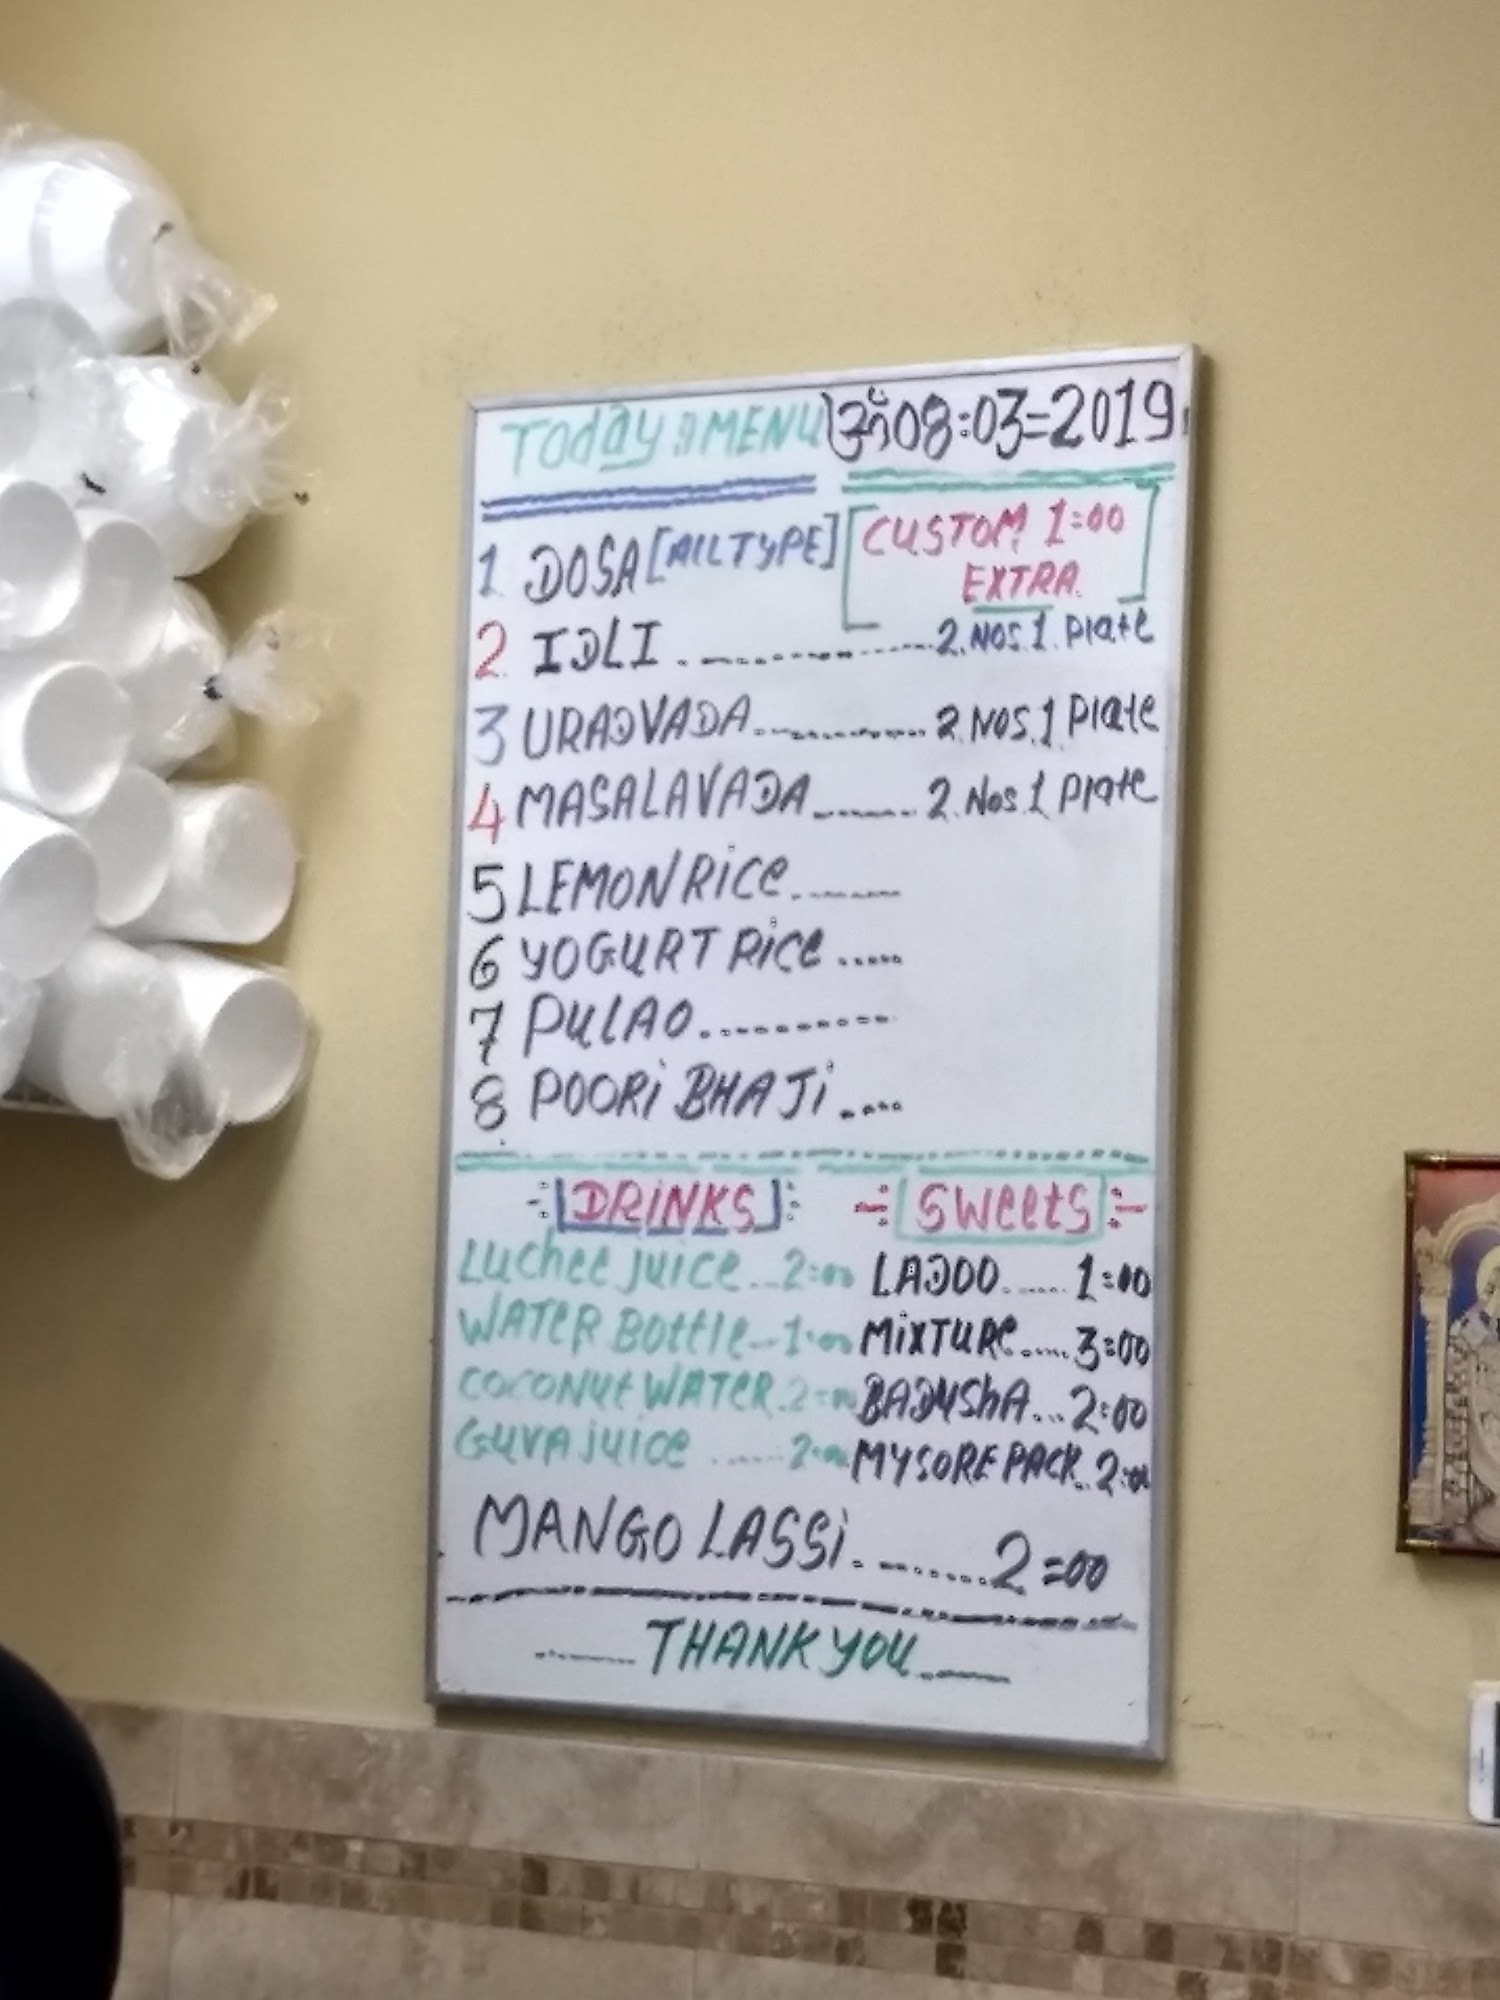 TODAY'S MENU ॐ 08:03=2019
1 DOSA [AllTYPE] [CUSTOM 1=00
EXTRA.]
2. IDLI ............ 2. NOS. 1. Plate
3 URADVADA............ 2. NOS. 1 Plate
4 MASALAVADA........ 2. Nos. 1 Plate
5 LEMON RiCe........
6 YOGURT RiCe .....
7 PULAO...........
8 POORi BHAJi ....
-:[DRiNKS]:- -:[SWeetS]:-
Luchee juice...2=00 LADOO...... 1=00
WATeR BOttle--1=00 MiXTURe..... 3=00
COCONut WATeR.2=00 BADUShA...2=00
GuVA juice ......2=00 MYSORE PACK..2=00
MANGO LASSi.........2=00
........THANK YOU........